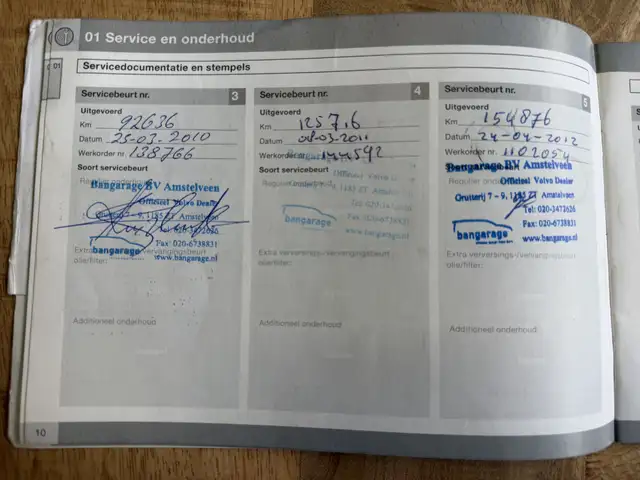 01 Service en onderhoud
01
Servicedocumentatie en stempels
Servicebeurt nr. 3
Uitgevoerd
Km 92636
Datum 25-03-2010
Werkorder nr. 138766
Soort servicebeurt
Bangarage BV Amstelveen
Officieel Volvo Dealer
7 - 9, 1185 ZT Amstelveen
Tel: 020-3472626
Fax: 020-6738831
bangarage
www.bangarage.nl
olie/filter:
Additioneel onderhoud
Servicebeurt nr. 4
Uitgevoerd
Km 125716
Datum 08-03-2011
Werkorder nr. 144592
Soort servicebeurt
bangarage
www.bangarage.nl
Extra verversings-/vervangingsbeurt
olie/filter:
Additioneel onderhoud
Servicebeurt nr. 5
Uitgevoerd
Km 154876
Datum 24-04-2012
Werkorder nr. 1102054
Bangarage BV Amstelveen
Officieel Volvo Dealer
7 - 9, 1185 ZT Amstelveen
Tel: 020-3472626
Fax: 020-6738831
bangarage
www.bangarage.nl
Extra verversings-/vervangingsbeurt
olie/filter:
Additioneel onderhoud
10